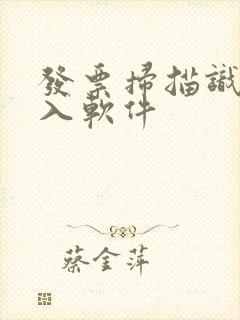 發票掃描識
入軟件
蔡金萍